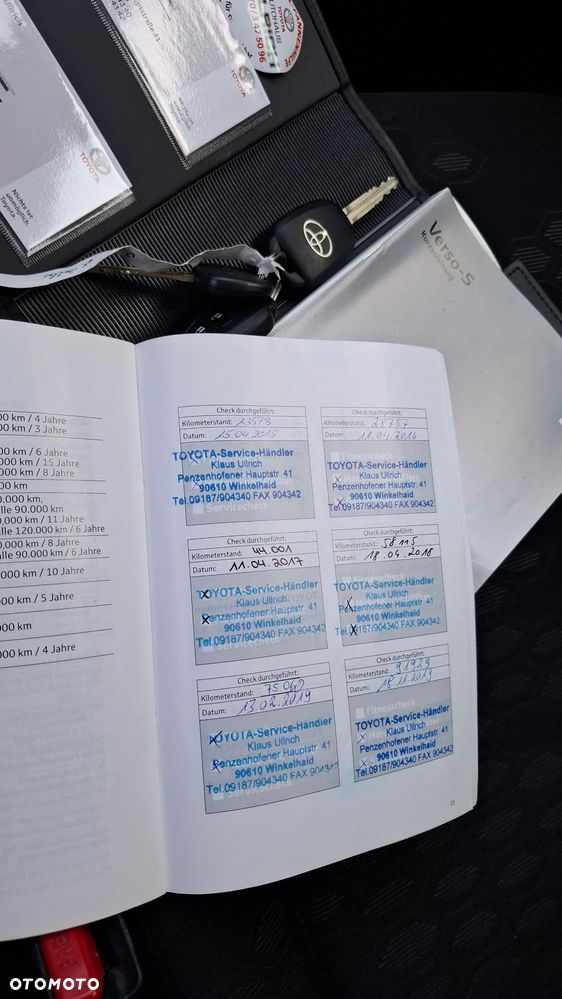 TOYOTA
Nichts ist
unmöglich.
Toyota.
TOYOTA
AUTOHAUS
TOYOTA
Verso-S
Kurzanleitung
000 km / 4 Jahre
000 km / 3 Jahre
000 km / 6 Jahre
000 km / 15 Jahre
000 km / 8 Jahre
000 km
0.000 km,
alle 90.000 km
0.000 km / 11 Jahre
alle 120.000 km / 6 Jahre
0.000 km / 8 Jahre
alle 90.000 km / 6 Jahre
000 km / 10 Jahre
000 km / 5 Jahre
000 km
000 km / 4 Jahre
Check durchgeführt:
Kilometerstand: 13578
Datum: 15.04.2015
TOYOTA-Service-Händler
Klaus Ullrich
Penzenhofener Hauptstr. 41
90610 Winkelhaid
Tel.09187/904340 FAX 904342
Servicecheck
Check durchgeführt:
Kilometerstand: 28757
Datum: 11.04.2016
Fitnesscheck
TOYOTA-Service-Händler
Klaus Ullrich
Penzenhofener Hauptstr. 41
90610 Winkelhaid
Tel.09187/904340 FAX 904342
Check durchgeführt:
Kilometerstand: 44.001
Datum: 11.04.2017
TOYOTA-Service-Händler
Klaus Ullrich
Penzenhofener Hauptstr. 41
90610 Winkelhaid
Tel.09187/904340 FAX 904342
Servicecheck
Check durchgeführt:
Kilometerstand: 58115
Datum: 18.04.2018
TOYOTA-Service-Händler
Klaus Ullrich
Penzenhofener Hauptstr. 41
90610 Winkelhaid
Tel.09187/904340 FAX 904342
Check durchgeführt:
Kilometerstand: 75060
Datum: 13.02.2019
TOYOTA-Service-Händler
Klaus Ullrich
Penzenhofener Hauptstr. 41
90610 Winkelhaid
Tel.09187/904340 FAX 904342
Servicecheck
Check durchgeführt:
Kilometerstand: 91929
Datum: 18.11.2019
Fitnesscheck
TOYOTA-Service-Händler
Klaus Ullrich
Penzenhofener Hauptstr. 41
90610 Winkelhaid
Tel.09187/904340 FAX 904342
OTOMOTO